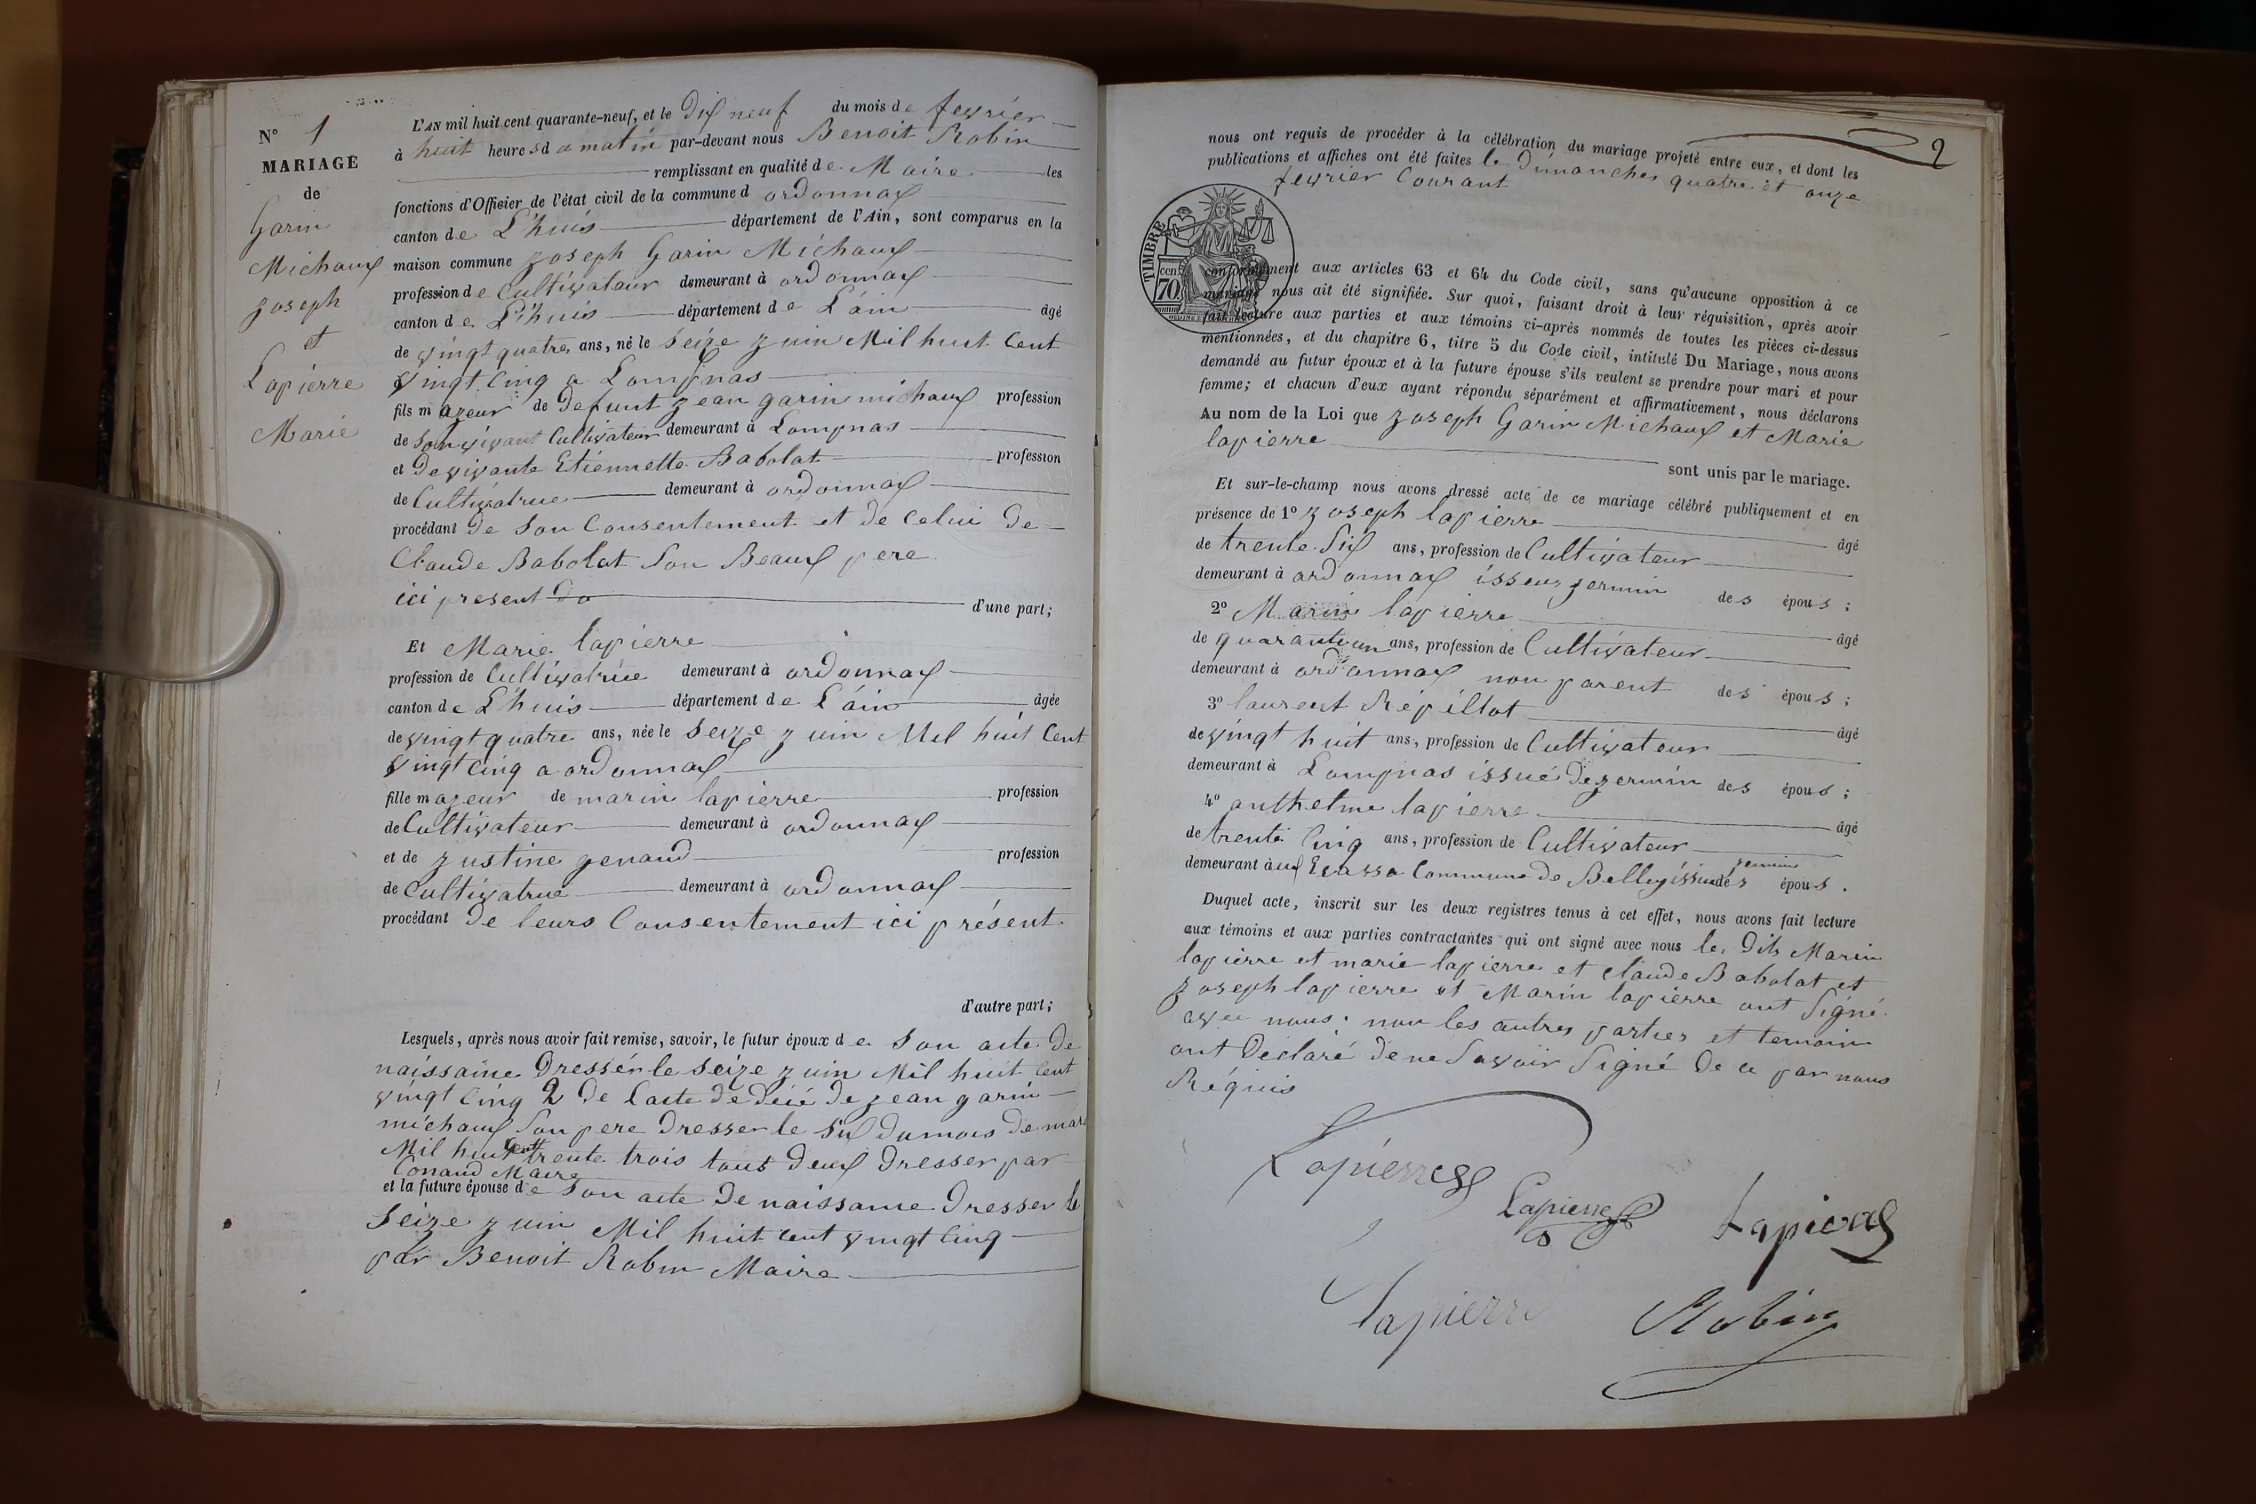 N° 1
MARIAGE
de
Garin
Michaux
Joseph
et
Lapierre
Marie
L'AN mil huit cent quarante-neuf, et le Dix neuf du mois de fevrier
à huit heures du matin par-devant nous Benoit Robin
remplissant en qualité de Maire les
fonctions d'Officier de l'état civil de la commune d ordonnax
canton de L'huis département de l'Ain, sont comparus en la
maison commune Joseph Garin Michaux
profession de Cultivateur demeurant à ordonnax
canton de L'huis département de L'ain âgé
de vingt quatre ans, né le Seize Juin Mil huit Cent
vingt Cinq a Lompnas
fils majeur de Defunt Jean garin michaux profession
de Son vivant Cultivateur demeurant à Lompnas
et De vivante Etiennette Babolat profession
de Cultivatrice demeurant à ordonnax
procédant De Son Consentement et de Celui De
Claude Babolat Son Beaux pere
ici present d'une part;
Et Marie lapierre
profession de Cultivatrice demeurant à ordonnax
canton de L'huis département de L'ain âgée
de vingt quatre ans, née le Seize Juin Mil huit Cent
vingt Cinq a ordonnax
fille majeur de marin lapierre profession
de Cultivateur demeurant à ordonnax
et de Justine genaud profession
de Cultivatrice demeurant à ordonnax
procédant De leurs Consentement ici présent
d'autre part;
Lesquels, après nous avoir fait remise, savoir, le futur époux de Son acte De
naissance Dressér le Seize Juin Mil huit Cent
vingt Cinq 2 De l'acte De Décé De Jean garin
michaux Son pere Dresser le Six Du mois De mars
Mil huit Cent trente trois tous Deux Dresser par
Conand Maire
et la future épouse de Son acte De naissance Dresser le
Seize Juin Mil huit cent vingt Cinq
par Benoit Robin Maire
2
nous ont requis de procéder à la célébration du mariage projeté entre eux, et dont les
publications et affiches ont été faites le Dimanches quatre et onze
fevrier Courant
TIMBRE
70 cen
conformément aux articles 63 et 64 du Code civil, sans qu'aucune opposition à ce
mariage nous ait été signifiée. Sur quoi, faisant droit à leur réquisition, après avoir
fait lecture aux parties et aux témoins ci-après nommés de toutes les pièces ci-dessus
mentionnées, et du chapitre 6, titre 5 du Code civil, intitulé Du Mariage, nous avons
demandé au futur époux et à la future épouse s'ils veulent se prendre pour mari et pour
femme; et chacun d'eux ayant répondu séparément et affirmativement, nous déclarons
Au nom de la Loi que Joseph Garin Michaux et Marie
lapierre
sont unis par le mariage.
Et sur-le-champ nous avons dressé acte de ce mariage célébré publiquement et en
présence de 1° Joseph lapierre âgé
de trente Six ans, profession de Cultivateur
demeurant à ordonnax isseuz Jermin des épous;
2° Marin lapierre âgé
de quarante un ans, profession de Cultivateur
demeurant à ordonnax non parent des épous;
3° laurent Répillot âgé
de vingt huit ans, profession de Cultivateur
demeurant à Lompnas issué De Jermin des épous;
4° anthelme lapierre âgé
de trente Cinq ans, profession de Cultivateur
demeurant à Commune de Belley issu Jermin des épous.
Duquel acte, inscrit sur les deux registres tenus à cet effet, nous avons fait lecture
aux témoins et aux parties contractantes qui ont signé avec nous le. Dits Marin
lapierre et marie lapierre et Claude Babolat et
Joseph lapierre et Marin lapierre ont Signé
avec nous: non les autres parties et temoin
ont Déclaré de ne Savoir Signé De ce par nous
Réquis
Lapierre
Lapierre
Lapierre
Lapierre
Robin